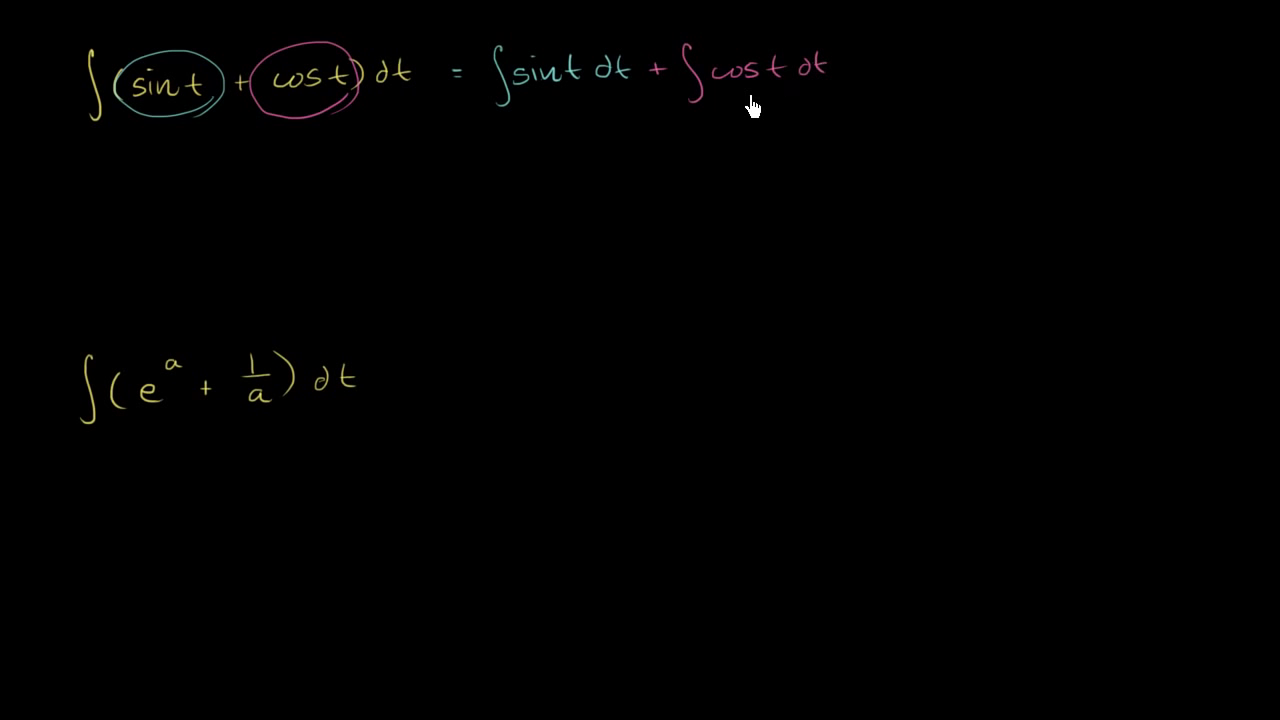 ∫(sin t + cos t) dt = ∫sin t dt + ∫cos t dt
∫(e^a + 1/a) dt